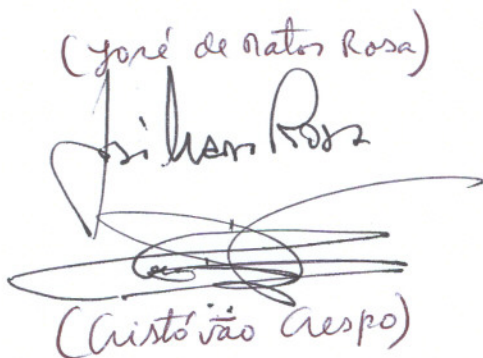 (José de Matos Rosa)
José Matos Rosa
(Cristóvão Crespo)